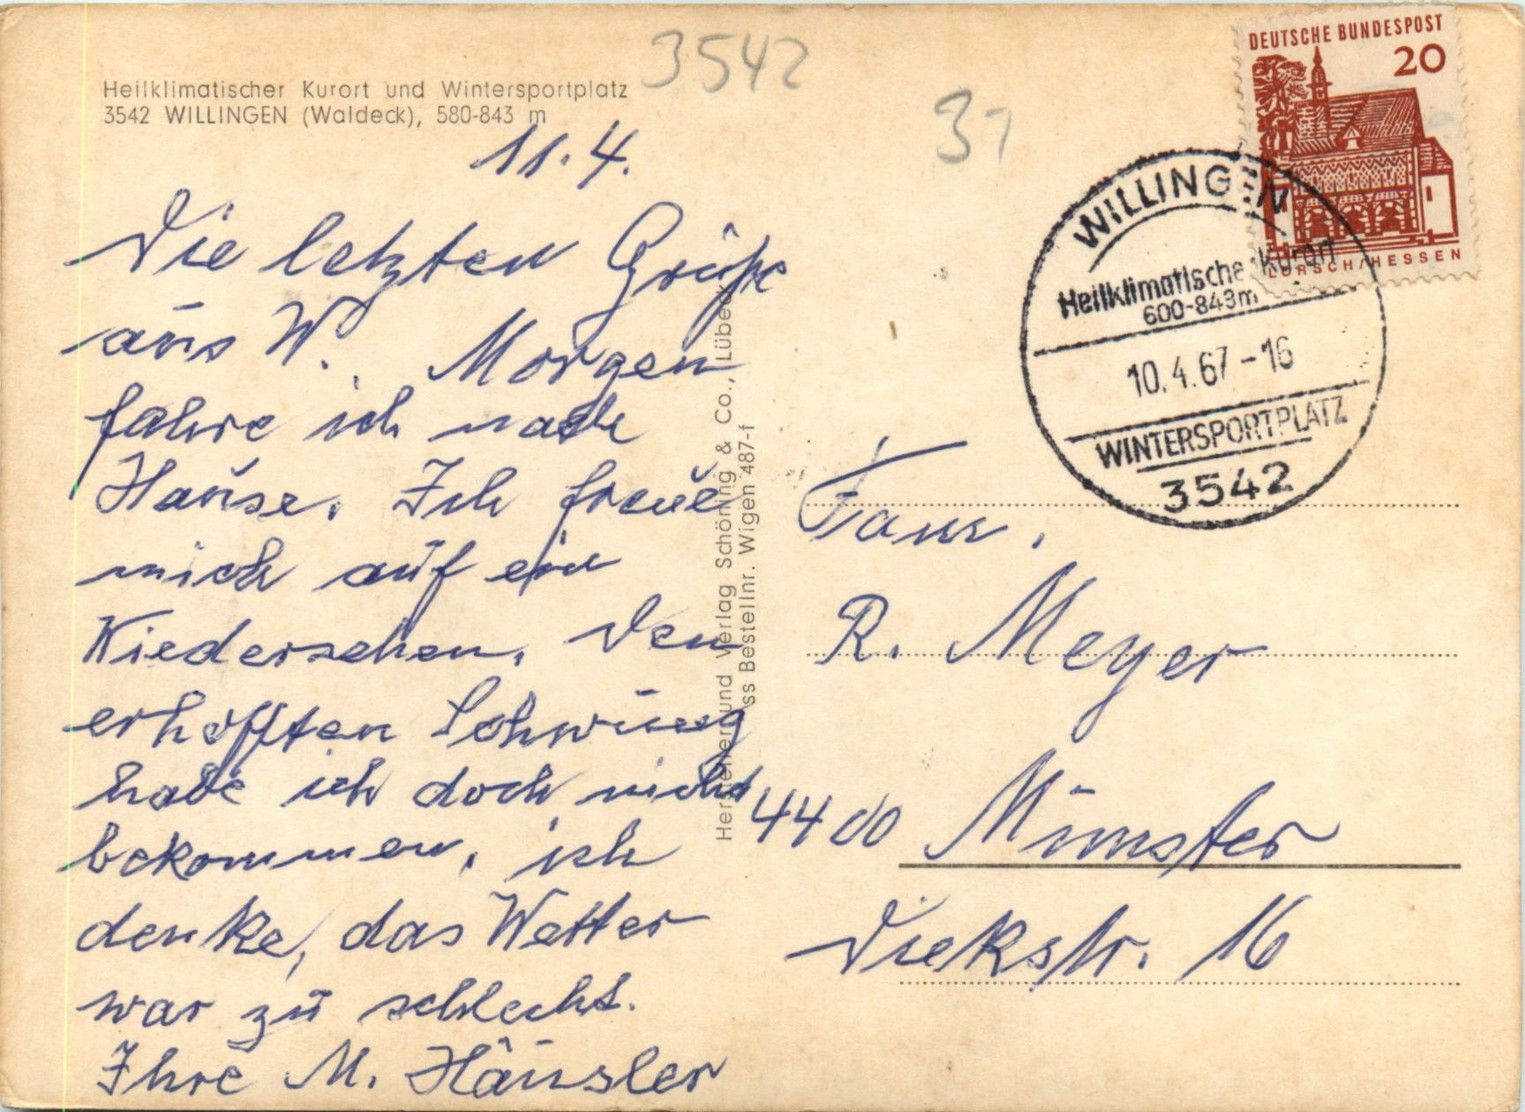 Heilklimatischer Kurort und Wintersportplatz
3542 WILLINGEN (Waldeck), 580-843 m
3542
37
11.4.
Die letzten Grüße
aus W. Morgen
fahre ich nach
Hause. Ich freue
mich auf ein
Wiedersehen. Den
erhofften Schwung
habe ich doch nicht
bekommen, ich
denke, das Wetter
war zu schlecht.
Ihre M. Häusler
Hersteller und Verlag Schöning & Co., Lübeck
ss Bestellnr. Wigen 487-f
DEUTSCHE BUNDESPOST
20
LORSCH/HESSEN
WILLINGEN
Heilklimatischer Kurort
600-843m
10.4.67-16
WINTERSPORTPLATZ
3542
Fam.
R. Meyer
4400 Münster
Dieckstr. 16